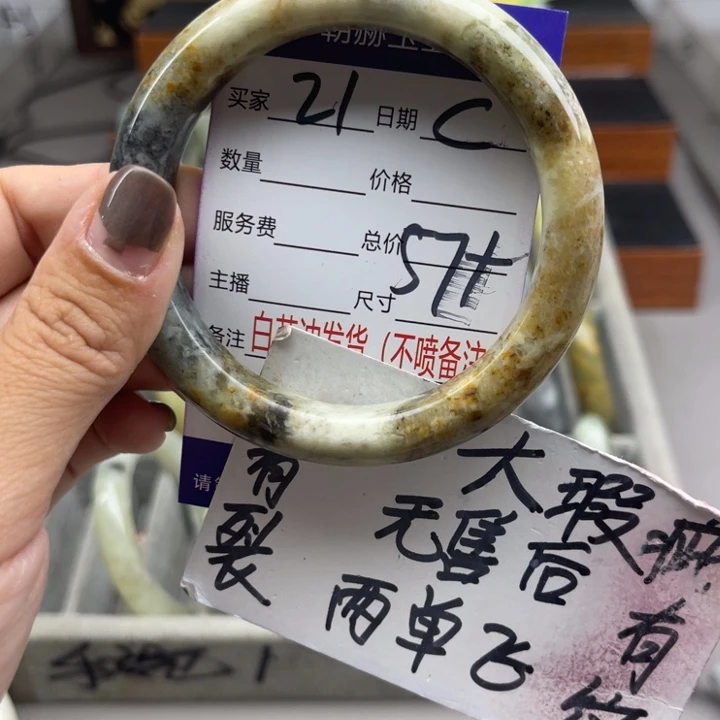 买家 21 日期 C
数量 价格
服务费 总价
主播 尺寸 57t
备注 白茶油发货（不喷备注
请
有裂
大瑕疵
无售后
有
两单飞